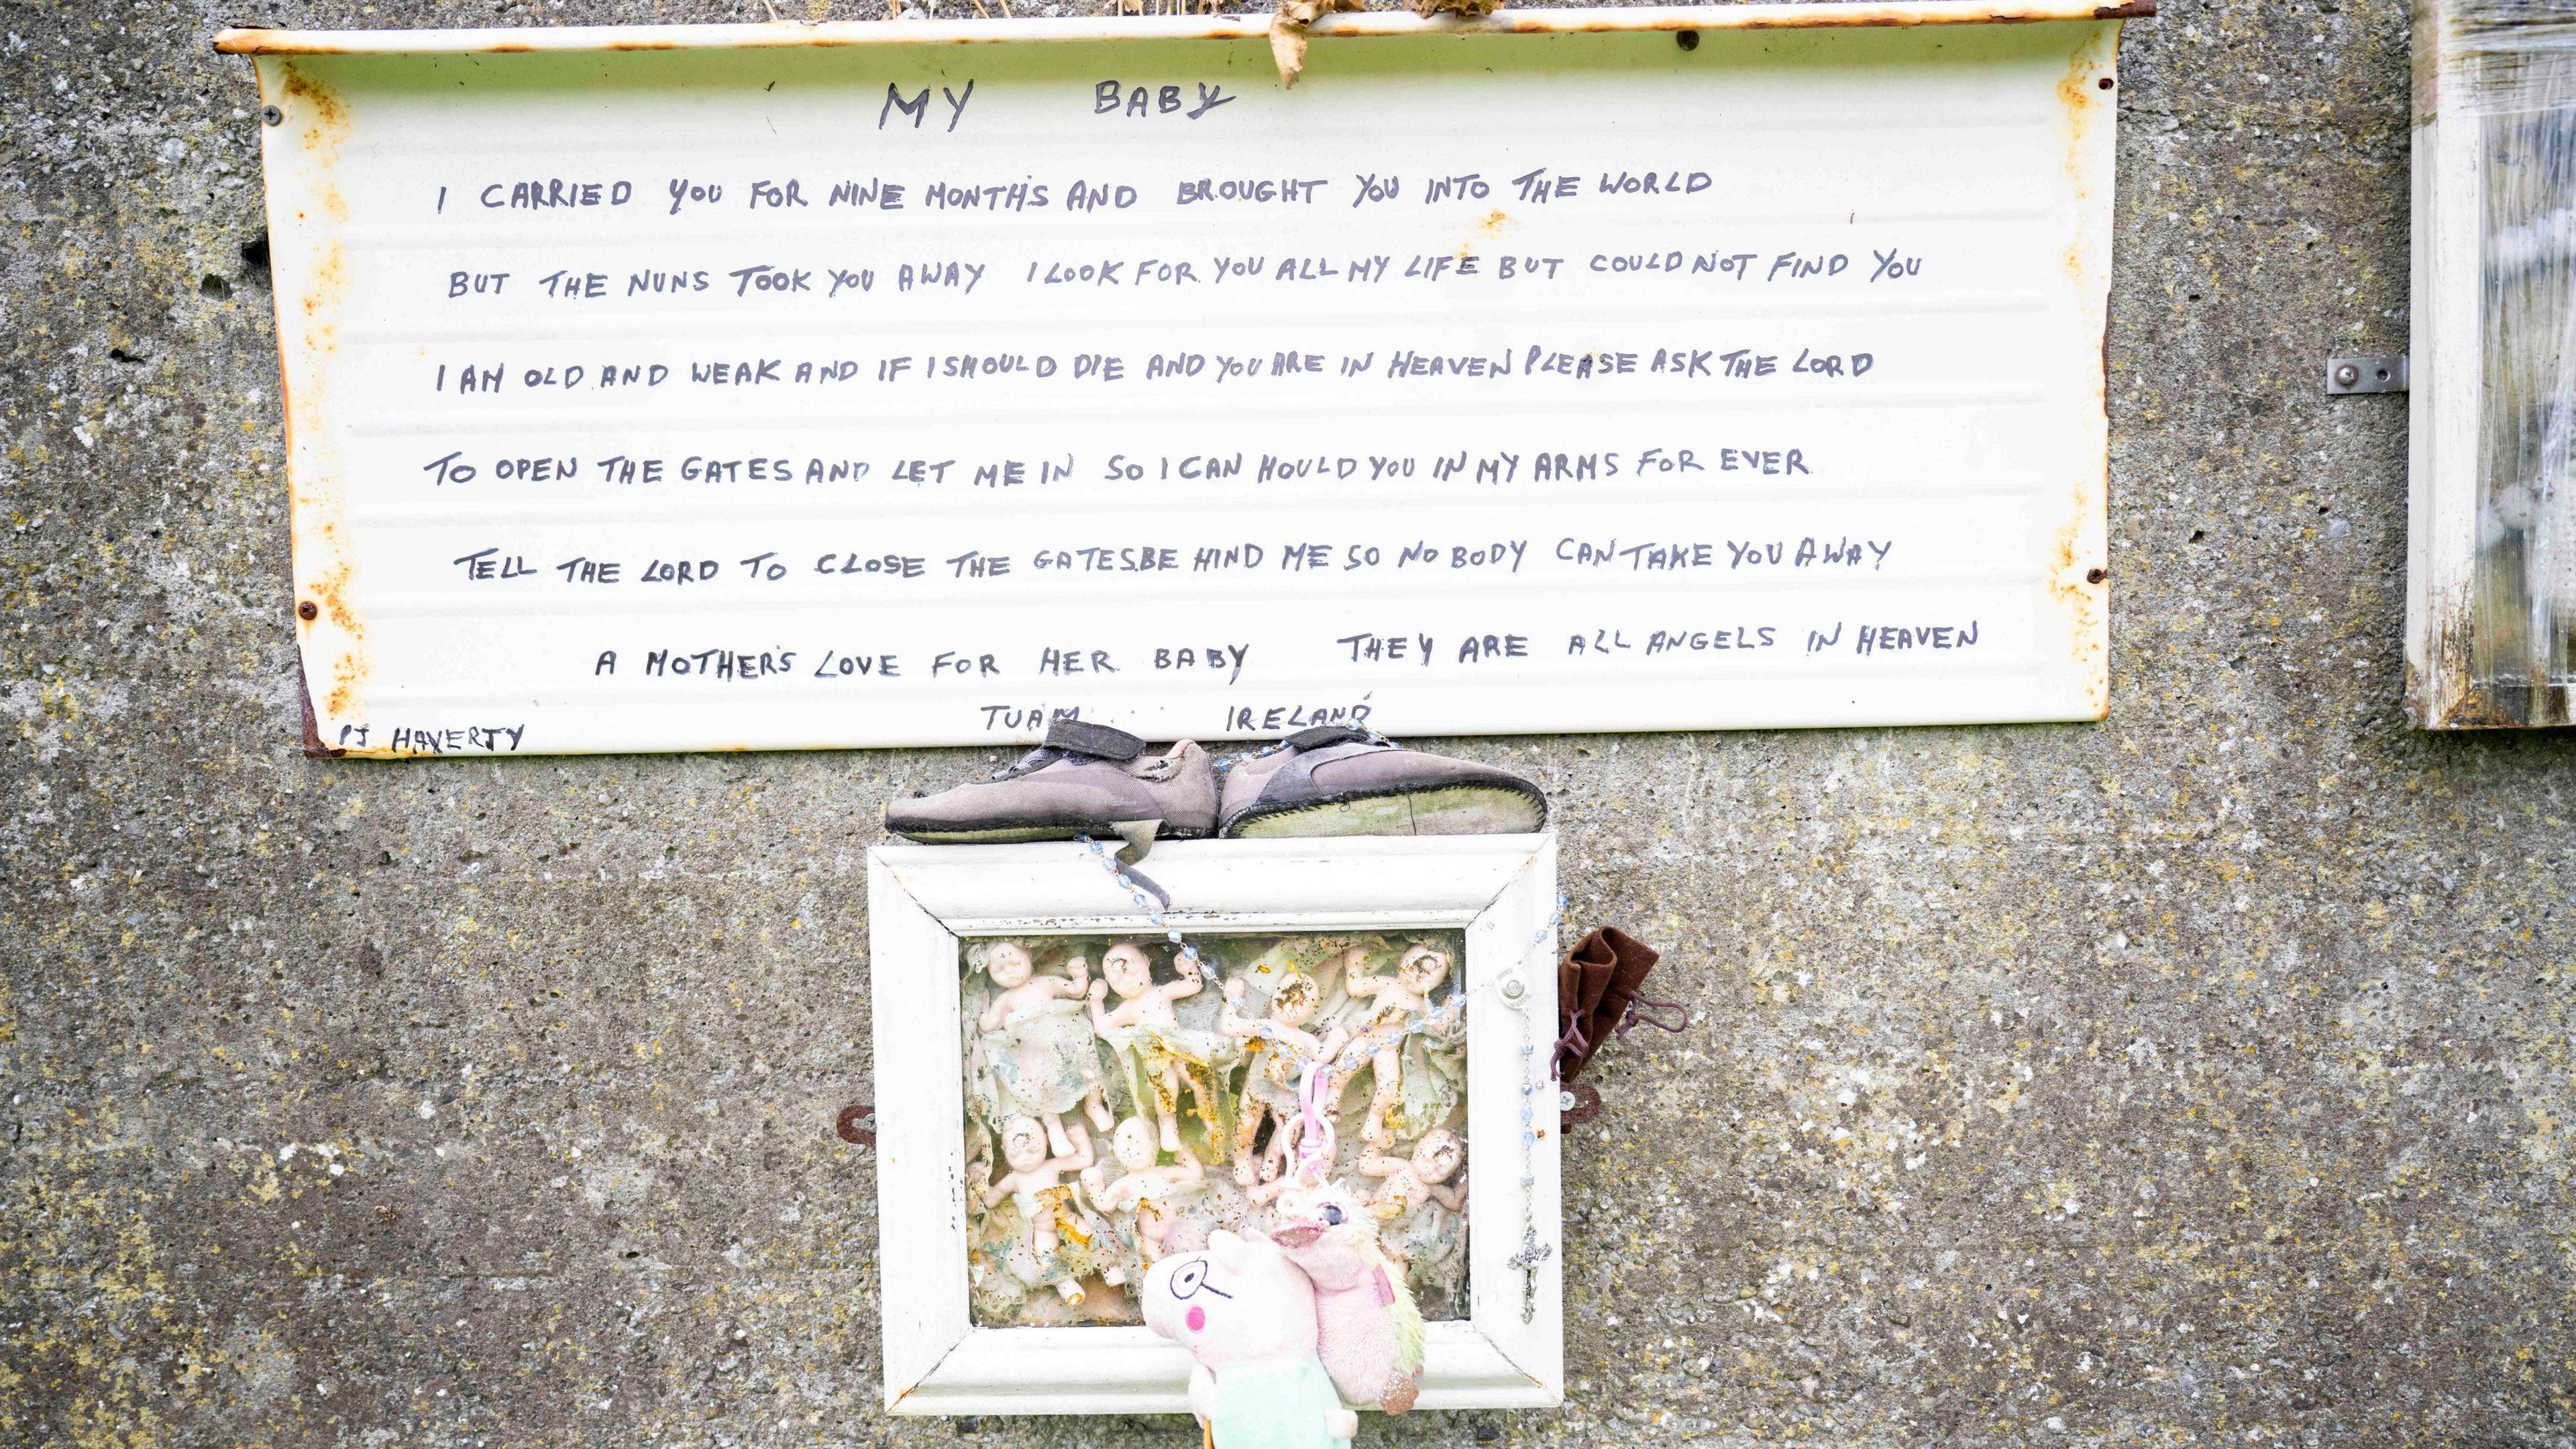 MY BABY
I CARRIED YOU FOR NINE MONTH'S AND BROUGHT YOU INTO THE WORLD
BUT THE NUNS TOOK YOU AWAY I LOOK FOR YOU ALL MY LIFE BUT COULD NOT FIND YOU
I AM OLD AND WEAK AND IF I SHOULD DIE AND YOU ARE IN HEAVEN PLEASE ASK THE LORD
TO OPEN THE GATES AND LET ME IN SO I CAN HOULD YOU IN MY ARMS FOR EVER
TELL THE LORD TO CLOSE THE GATES BE HIND ME SO NO BODY CAN TAKE YOU AWAY
A MOTHER'S LOVE FOR HER BABY THEY ARE ALL ANGELS IN HEAVEN
TUAM IRELAND
PJ HAVERTY